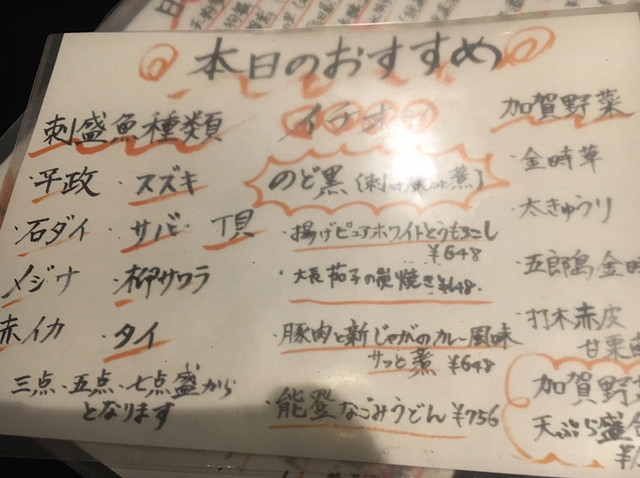 本日のおすすめ
刺盛魚種類
平政 ・スズキ
・石ダイ ・サバ 丁貝
メジナ 柳サワラ
赤イカ ・タイ
三点・五点・七点盛から
となります
イチオシ
のど黒(刺 煮)
・揚げピュアホワイトとうもろこし
¥648
・大長茄子の炭焼き¥648.
・豚肉と新じゃがのカレー風味
サッと煮 ¥648
・能登なごみうどん¥756
加賀野菜
・金時草
・太きゅうり
・五郎島金時
・打木赤皮
甘栗
加賀野
天ぷら盛